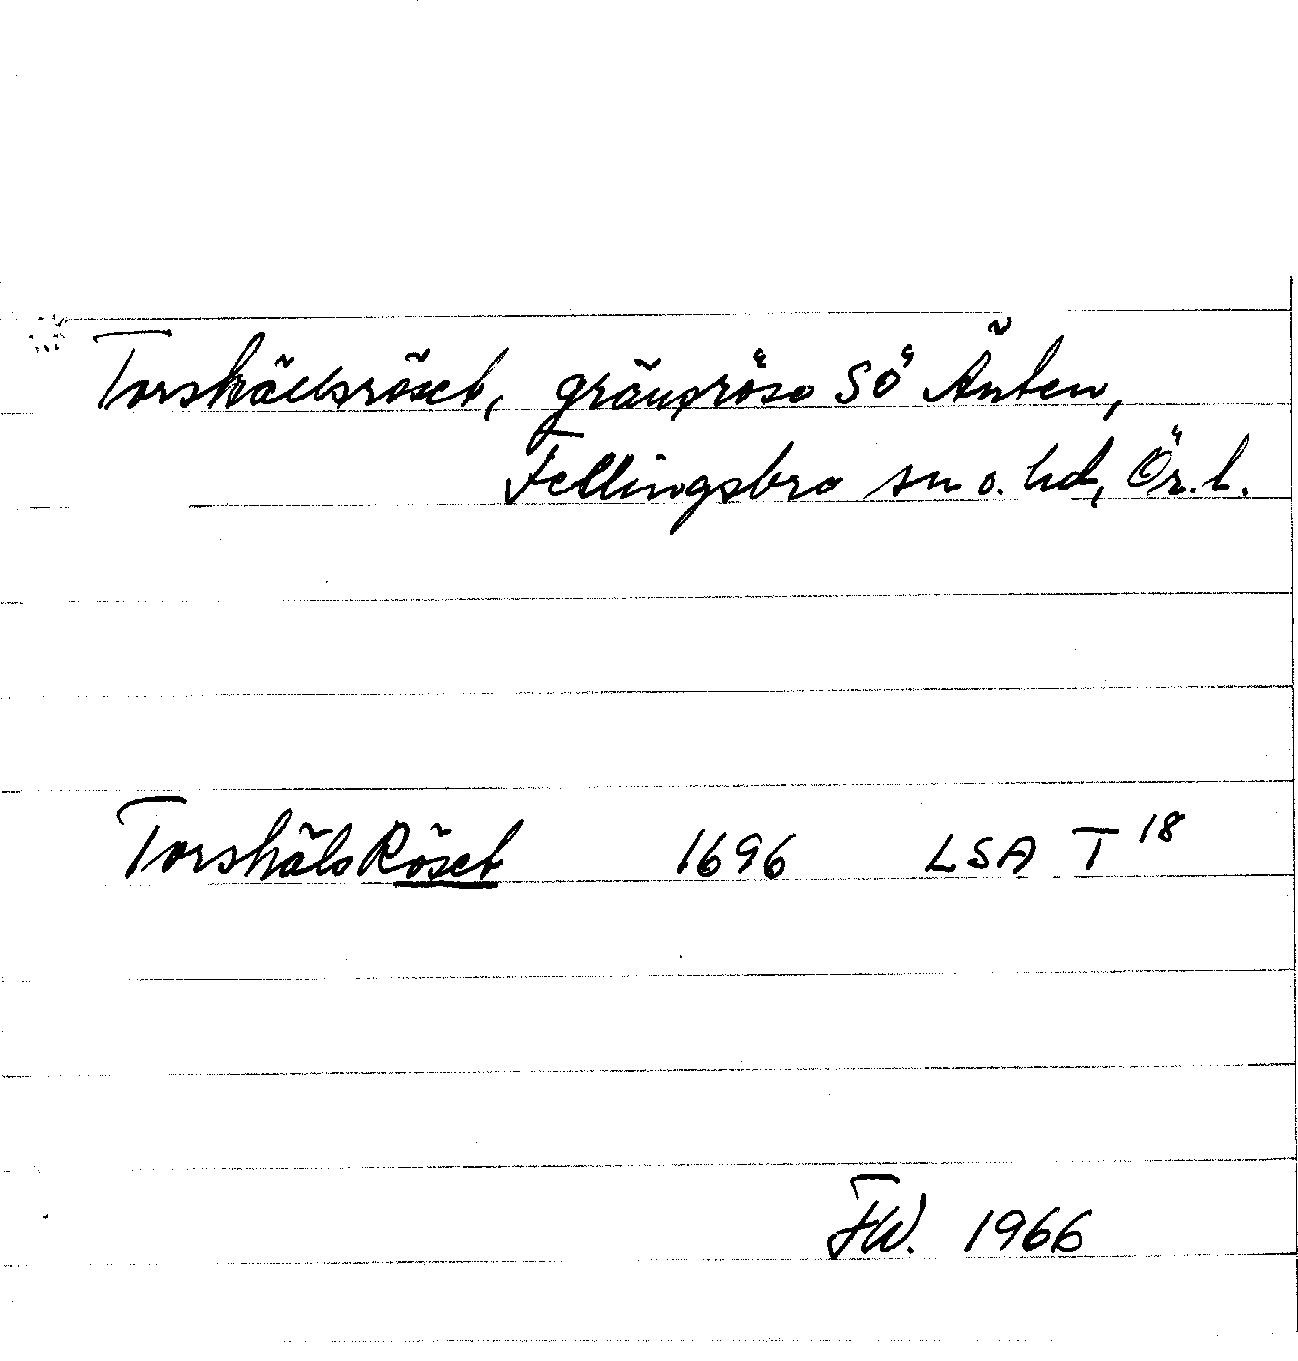 Torshällsröset, gränsröse SÖ Änten,
Fellingsbro sn o. hd, Ör. l.
TorshälsRöset 1696 LSA T 18
FW. 1966